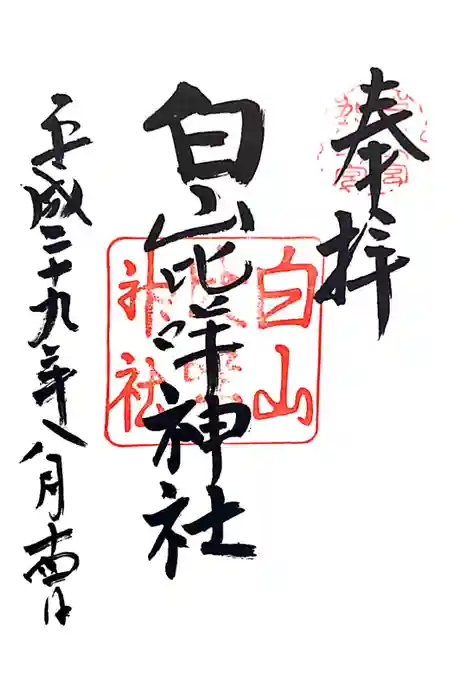 奉拝
白山比咩神社
白山
神社
平成二十九年八月十四日